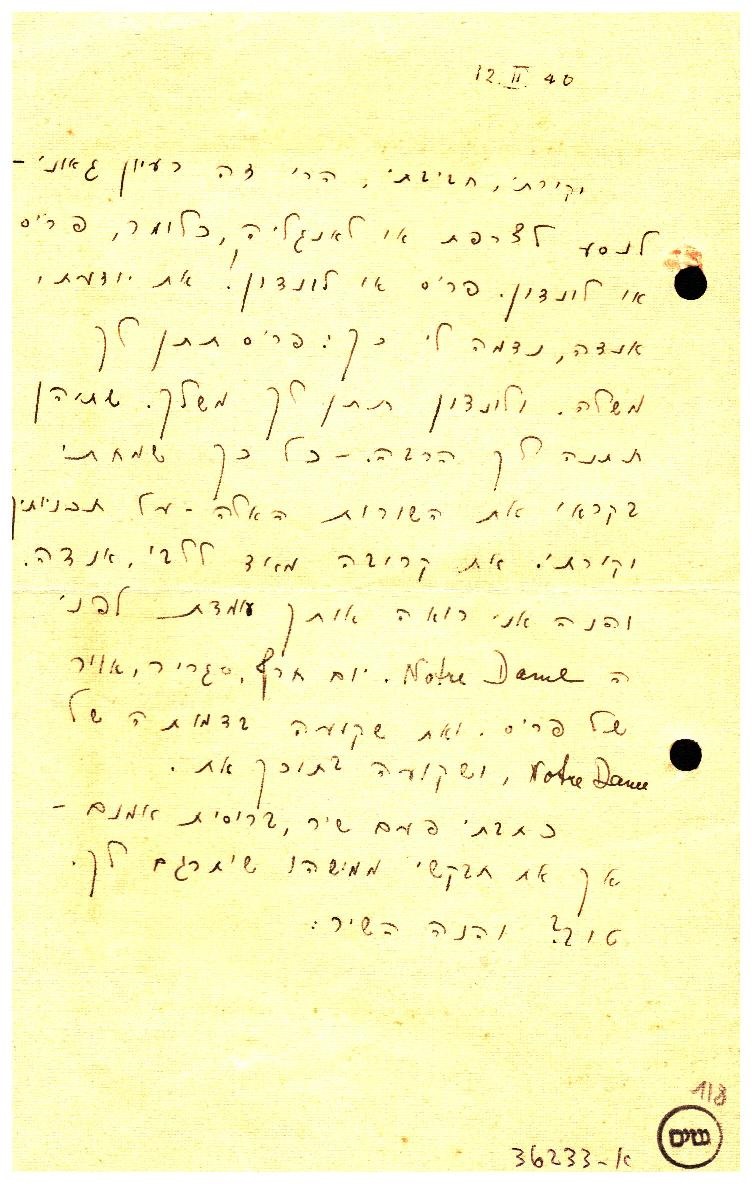 12.II.40
יקירתי, חביבתי, הרי זה רעיון גאוני –
לנסע לצרפת או לאנגליה, כלומר, פריס
או לונדון. פריס או לונדון! את יודעת,
אנדה, נדמה לי כך: פריס תתן לך
משלה. ולונדון תתן לך משלך. שתיהן
תתנה לך הרבה. – כל כך שמחתי
בקראי את השורות האלה – על תכניותיך
יקירתי. את קרובה מאד ללבי, אנדה.
והנה אני רואה אותך עומדת לפני
ה Notre Dame. יום חרף, סגריר, אויר
של פריס. ואת שקועה בדמותה של
Notre Dame, ושקועה בתוכך את.
כתבתי פעם שיר, ברוסית אמנם –
אך את תבקשי ממישהו שיתרגם לך.
טוב? והנה השיר:
118
גנזים
36233-א